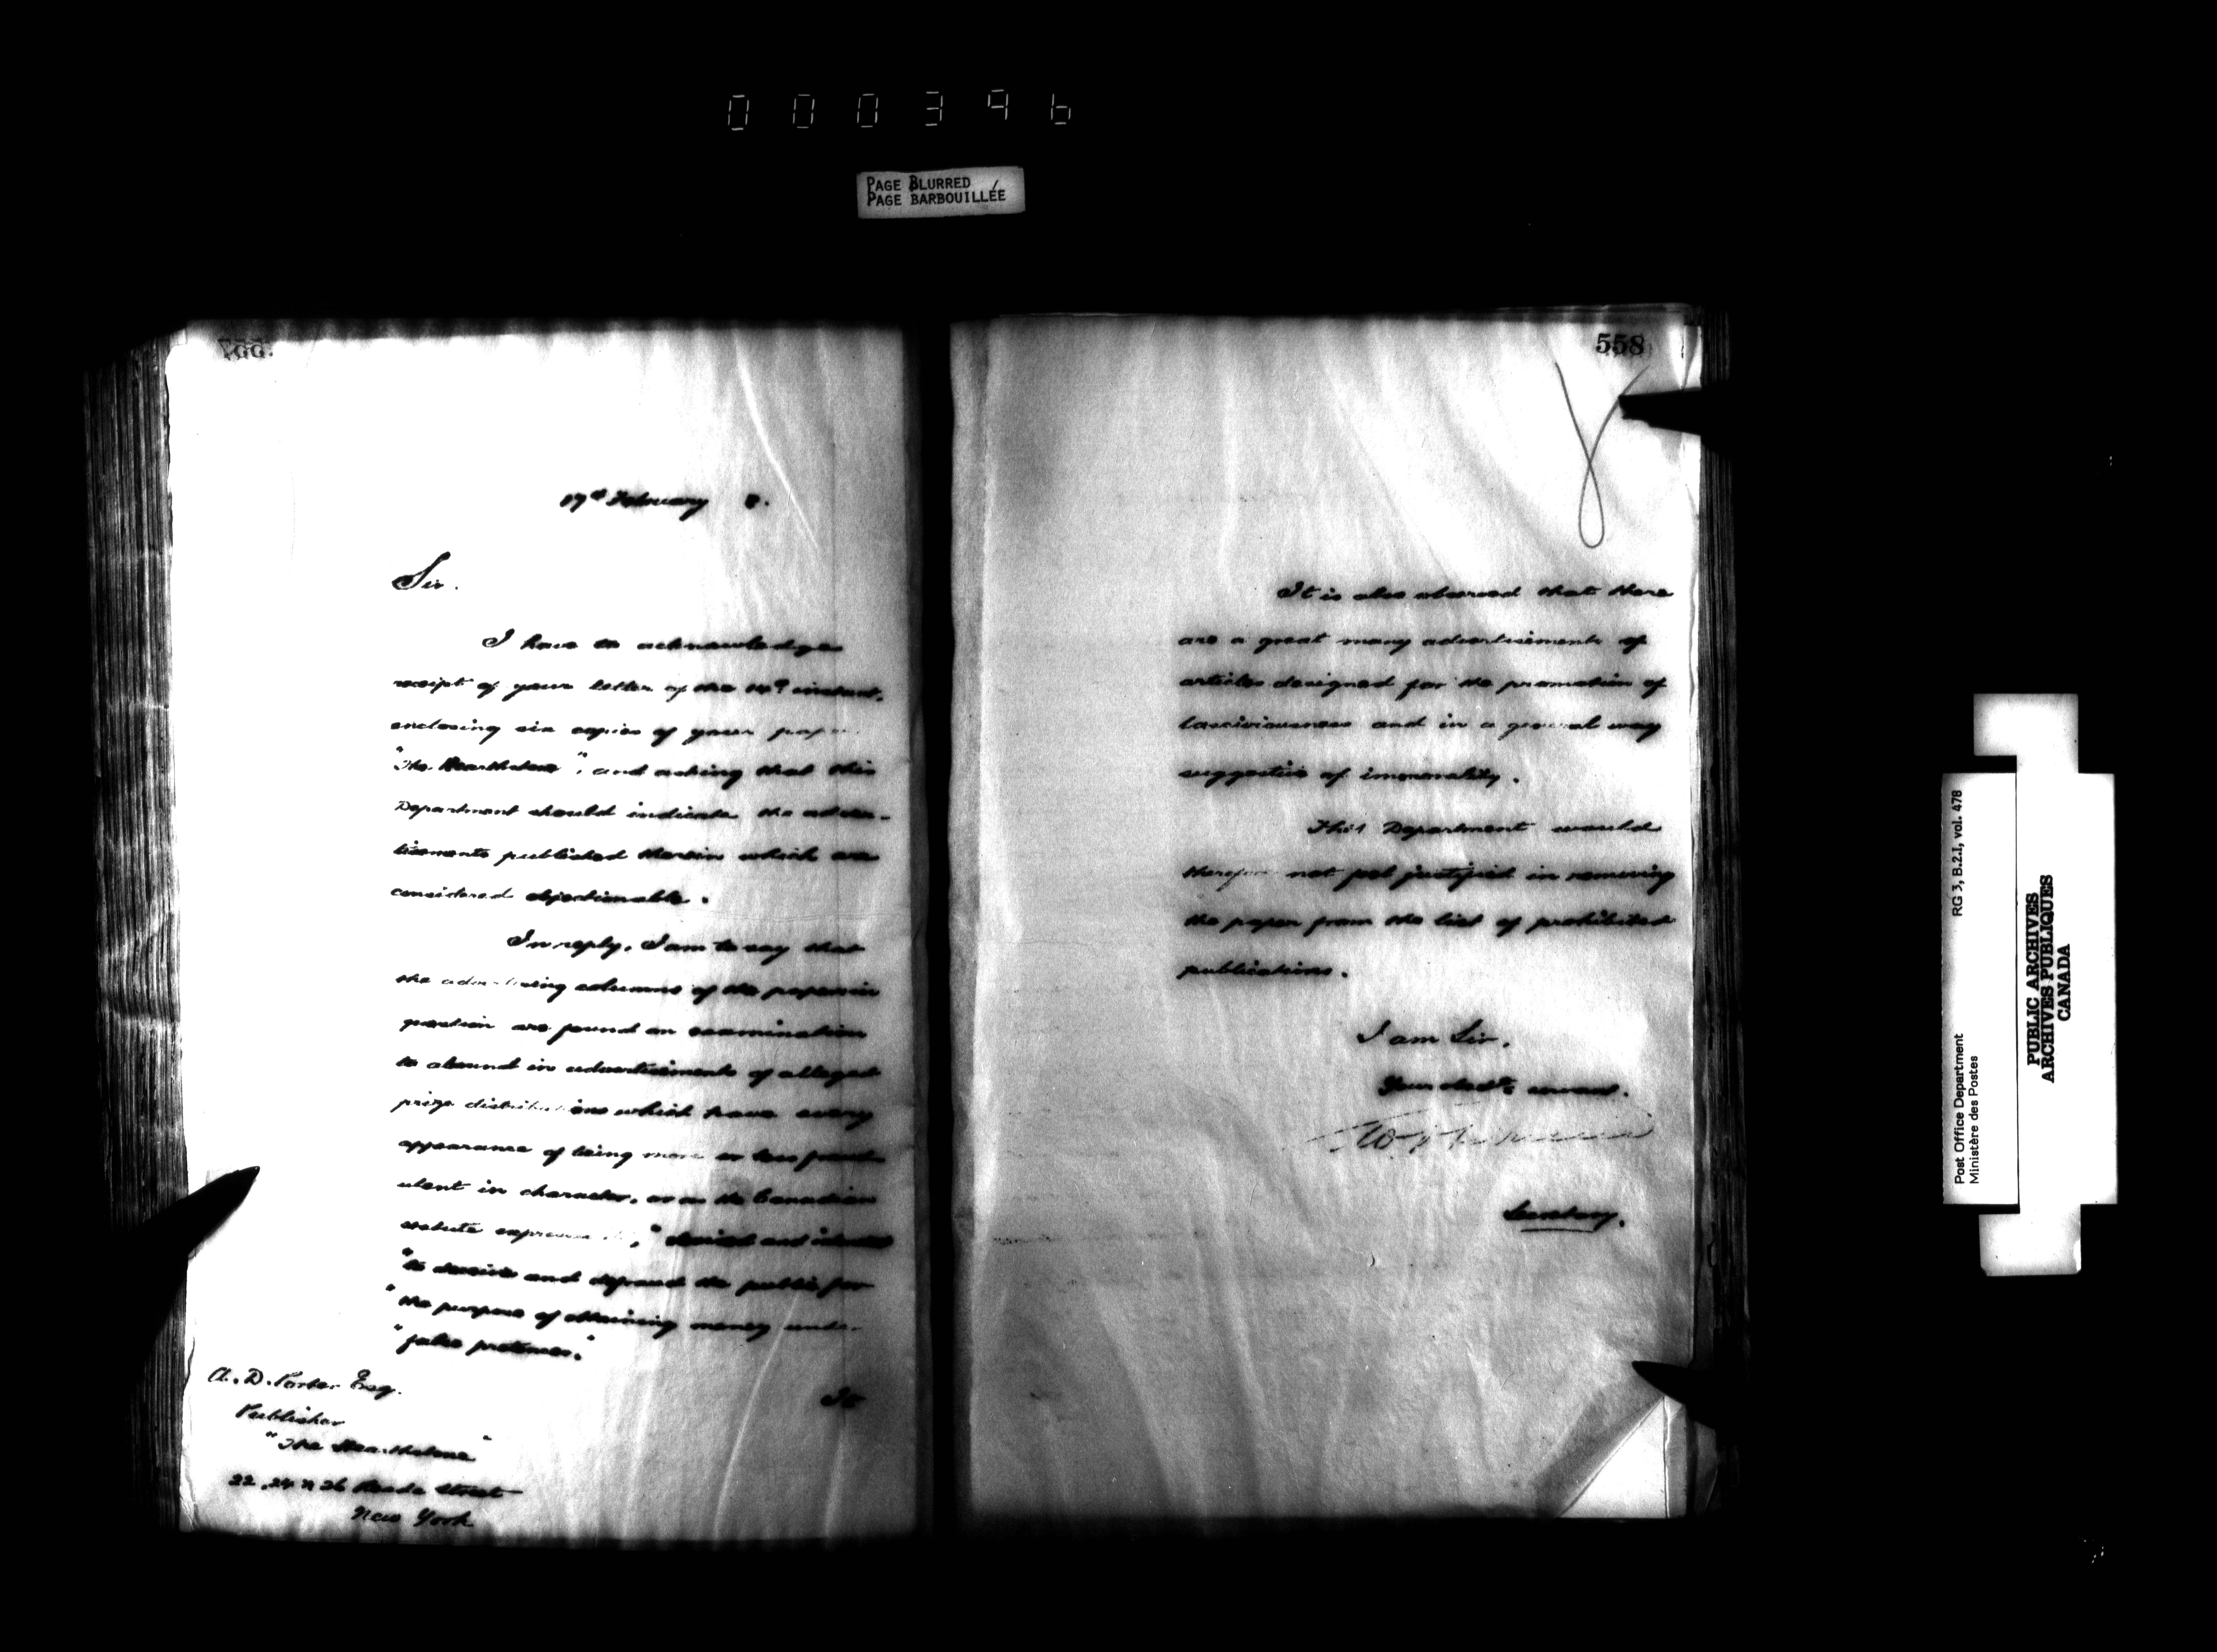 000396
PAGE BLURRED
PAGE BARBOUILLÉE
557
17th February 8.
Sir.
I have to acknowledge
receipt of your letter of the 14th instant,
enclosing six copies of your paper
"The Hearthstone", and asking that this
Department should indicate the adver-
tisements published therein which are
considered objectionable.
In reply, I am to say that
the advertising columns of the paper in
question are found on examination
to abound in advertisements of alleged
prize distributions which have every
appearance of being more or less fraud-
ulent in character, or as the Canadian
statute expresses it, " devised and intended
"to deceive and defraud the public for
"the purpose of obtaining money under
"false pretences."
It
A. D. Porter Esq.
Publisher
"The Hearthstone"
22, 24 & 26 Reade Street
New York
558
It is also observed that there
are a great many advertisements of
articles designed for the promotion of
lasciviousness and in a general way
suggestive of immorality.
This Department would
therefore not feel justified in removing
the paper from the list of prohibited
publications.
I am Sir,
Your obedt. servant.
Secretary.
Post Office Department
Ministère des Postes
RG 3, B.2.I, vol. 478
PUBLIC ARCHIVES
ARCHIVES PUBLIQUES
CANADA